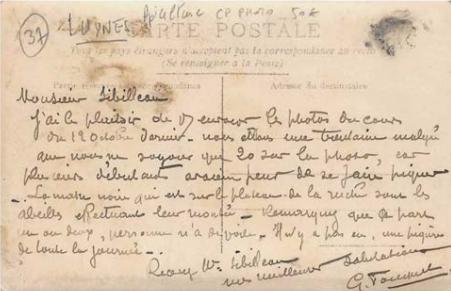 37 LUYNES Apiculture CP PHOTO 50€
CARTE POSTALE
Tous les pays étrangers n'acceptent pas la correspondance au recto
(Se renseigner à la Poste)
Partie correspondance Adresse du destinataire
Monsieur Sibilleau
J'ai le plaisir de vous envoyer les photos du cours
du 12 Octobre dernier - nous étions une trentaine malgré
que nous ne soyons que 20 sur la photo, car
plusieurs débutants avaient peur de se faire piquer
- La masse noire qui est sur le plateau de la ruche sont les
abeilles effectuant leur montée - Remarquez que à part
un ou deux, personne n'a de voile - Il n'y a pas eu une piqûre
de toute la journée -
Recevez Mr Sibilleau
mes meilleures Salutations
G.